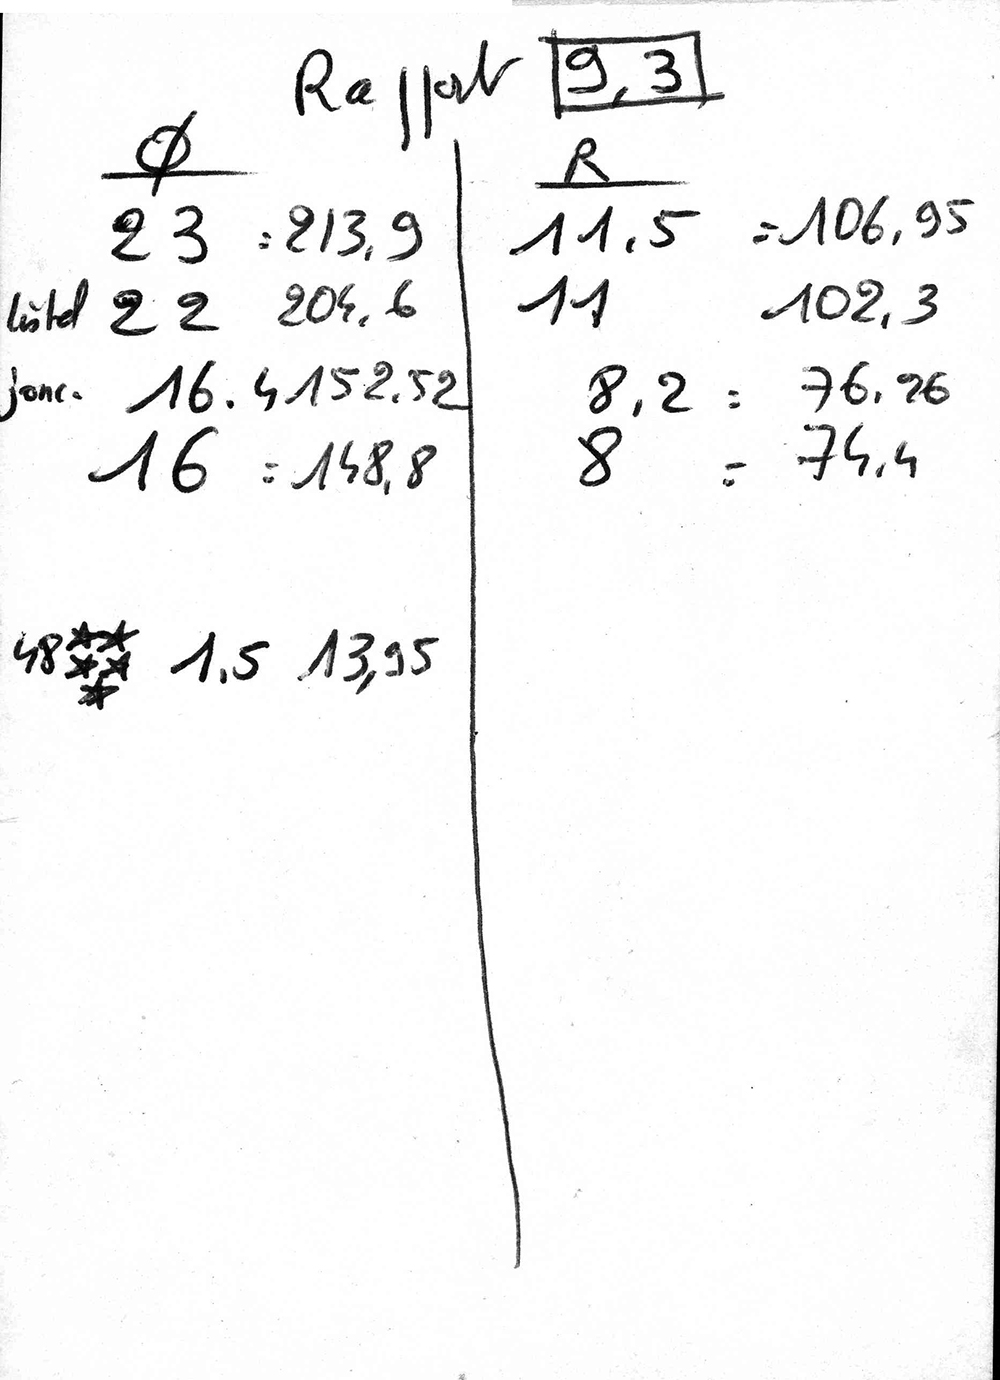 Rapport 9,3
Ø R
23 = 213,9 11.5 = 106,95
listel 22 204.6 11 102,3
jonc. 16.4 152.52 8,2 = 76.26
16 = 148,8 8 = 74.4
48 ★★★★★ 1.5 13,95